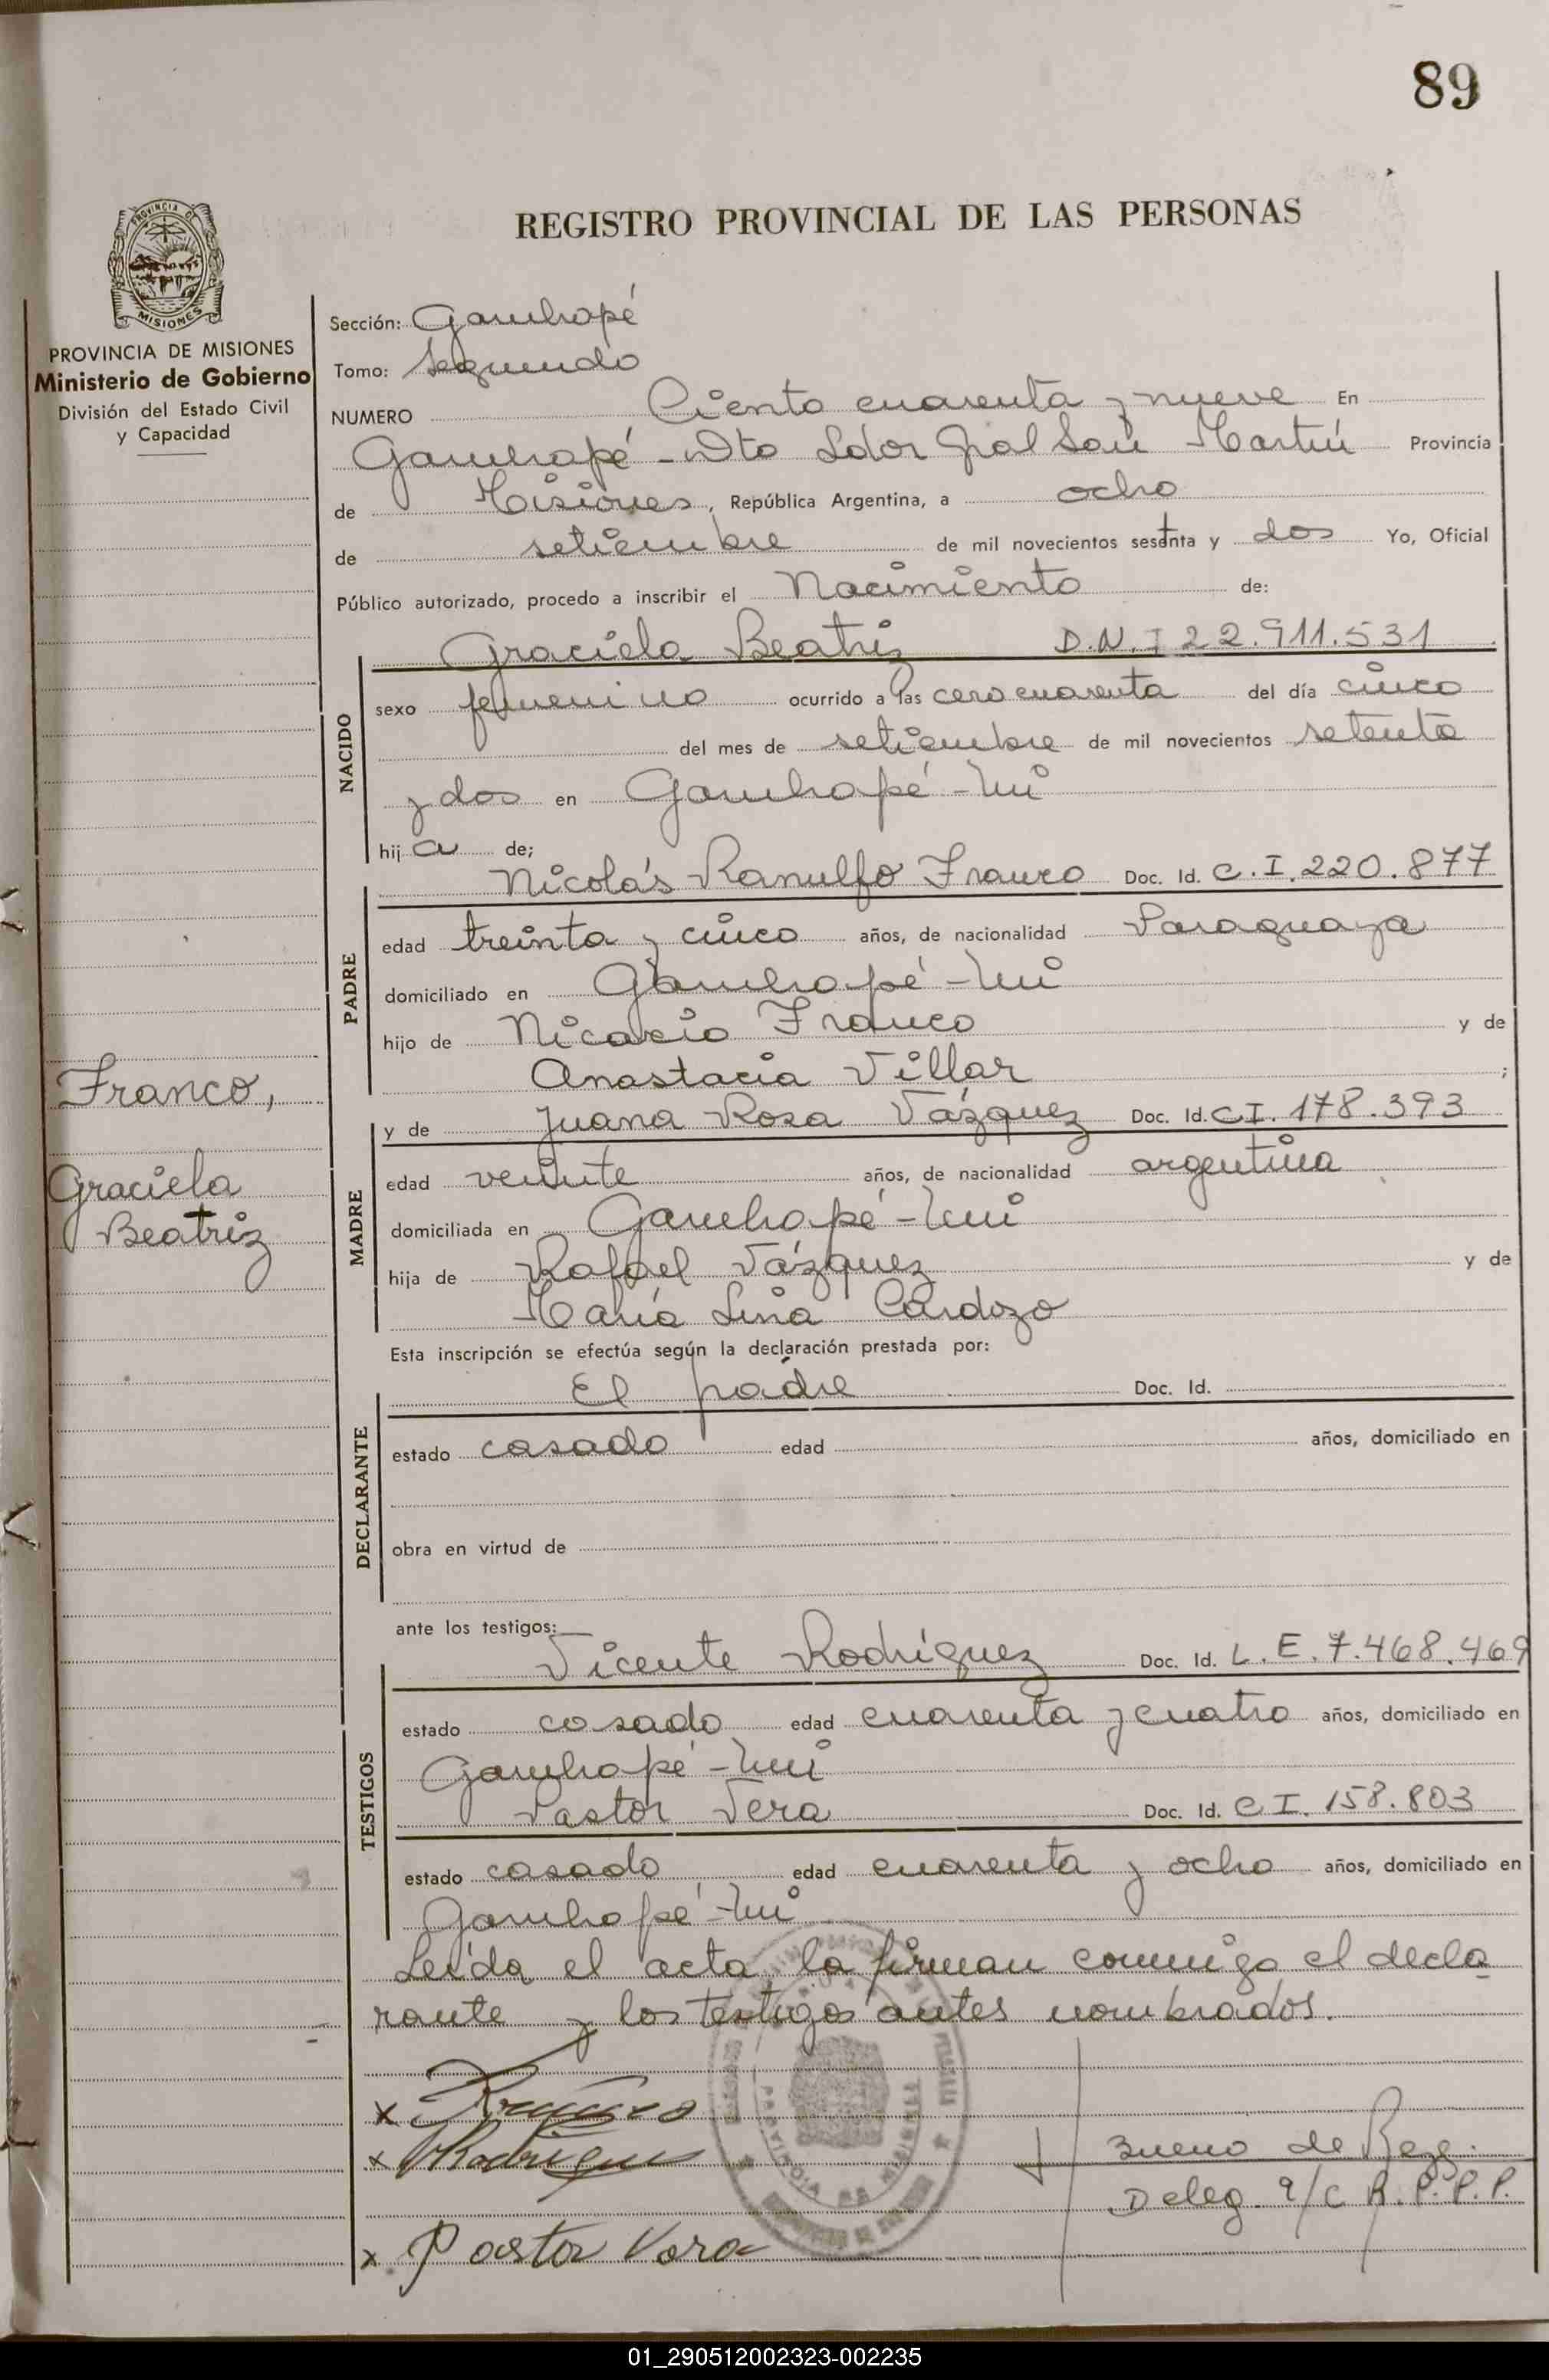 89
REGISTRO PROVINCIAL DE LAS PERSONAS
PROVINCIA DE MISIONES
Ministerio de Gobierno
División del Estado Civil
y Capacidad
Sección: Garuhapé
Tomo: Segundo
NUMERO Ciento cuarenta y nueve En
Garuhapé - Dto Ldor Gral San Martín Provincia
de Misiones, República Argentina, a ocho
de setiembre de mil novecientos setenta y dos Yo, Oficial
Público autorizado, procedo a inscribir el Nacimiento de:
Graciela Beatriz D.N.I 22.911.531
NACIDO
sexo femenino ocurrido a las cero cuarenta del día cinco
del mes de setiembre de mil novecientos setenta
y dos en Garuhapé-Mi
hija de;
Nicolás Ranulfo Franco Doc. Id. C.I. 220.877
PADRE
edad treinta y cinco años, de nacionalidad Paraguaya
domiciliado en Garuhapé-Mi
hijo de Nicasio Franco y de
Anastacia Villar ;
y de Juana Rosa Vázquez Doc. Id. C I. 178.393
MADRE
edad veinte años, de nacionalidad argentina
domiciliada en Garuhapé-Mi
hija de Rafael Vázquez y de
María Lina Cardozo
Franco,
Graciela
Beatriz
Esta inscripción se efectúa según la declaración prestada por:
El padre Doc. Id.
DECLARANTE
estado casado edad años, domiciliado en
obra en virtud de
ante los testigos:
Vicente Rodríguez Doc. Id. L.E. 7.468.469
TESTIGOS
estado casado edad cuarenta y cuatro años, domiciliado en
Garuhapé-Mi
Pastor Vera Doc. Id. C I. 158.803
estado casado edad cuarenta y ocho años, domiciliado en
Garuhapé-Mi
Leída el acta, la firman conmigo el decla
rante y los testigos antes nombrados.
x Franco
x VRodriguez
Bueno de
Deleg. R.P.P.P.
x Pastor Vera
01_290512002323-002235